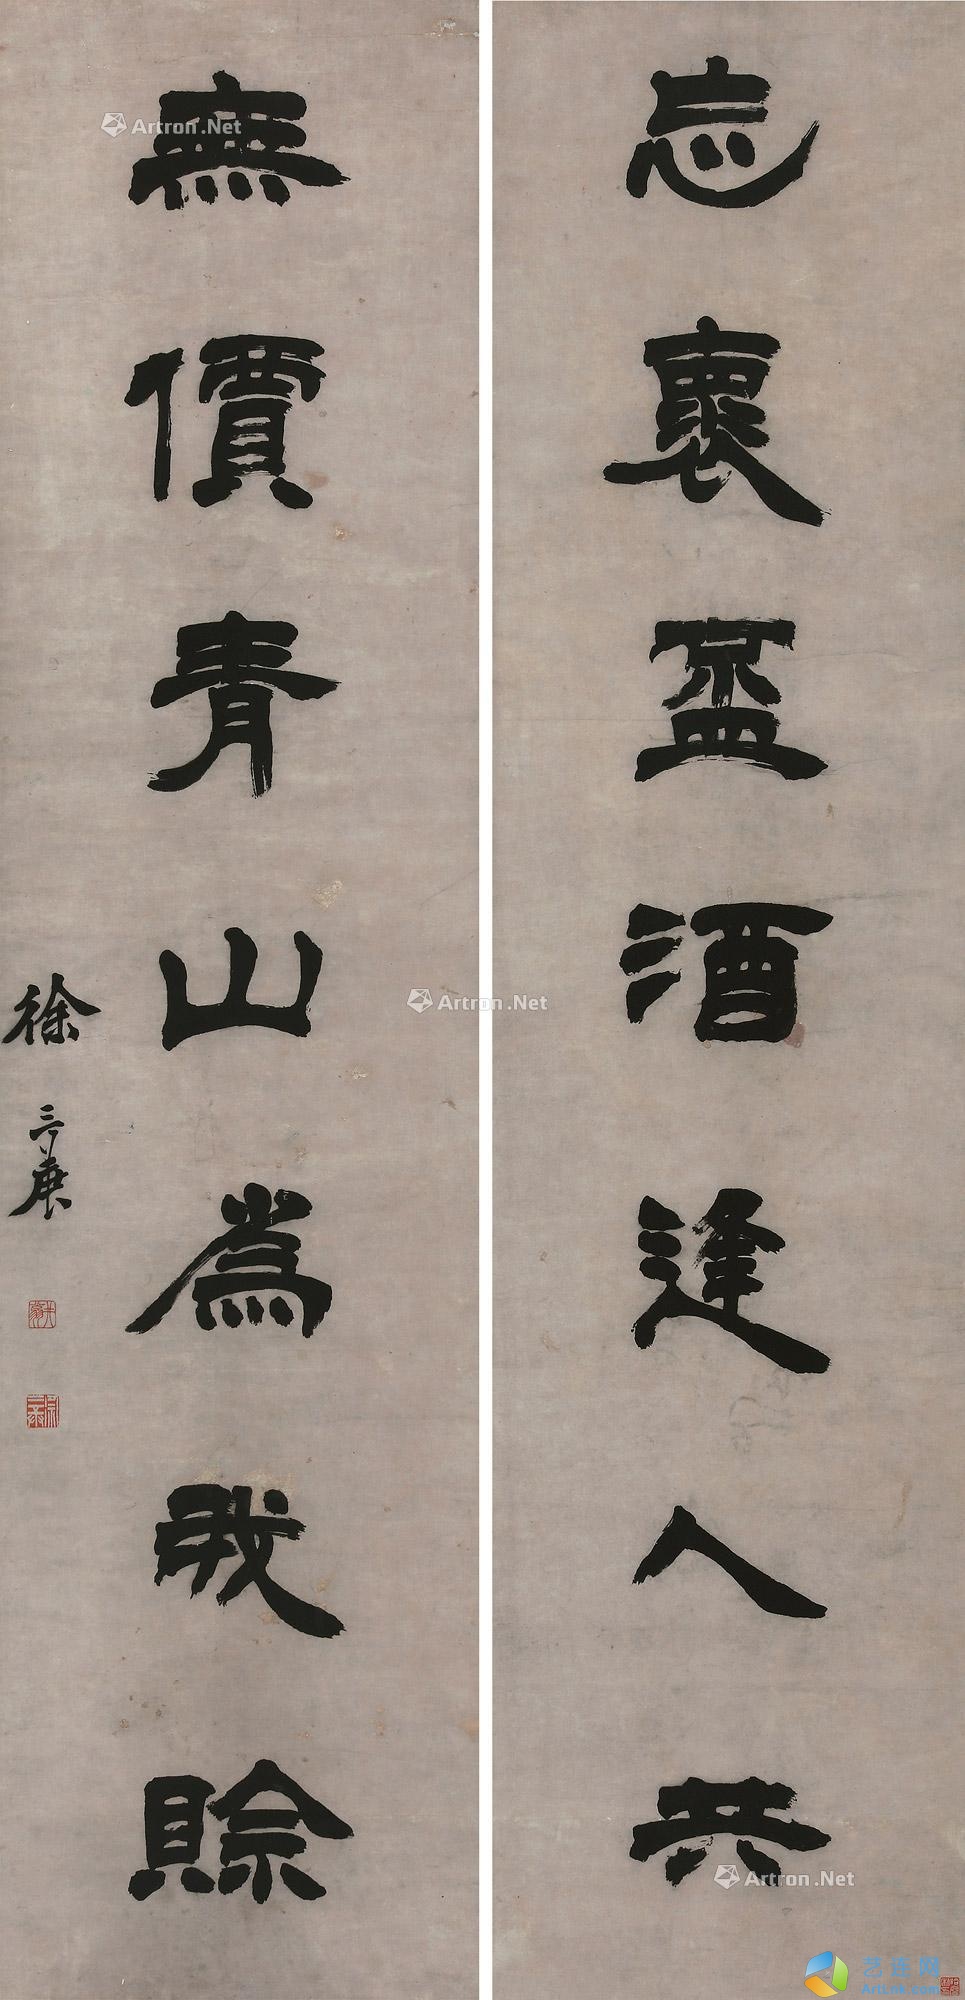 忘褱盃酒逢人共
無價青山為我賒
徐三庚
Artron.Net
Artron.Net
Artron.Net
艺连网
Artlnk.com